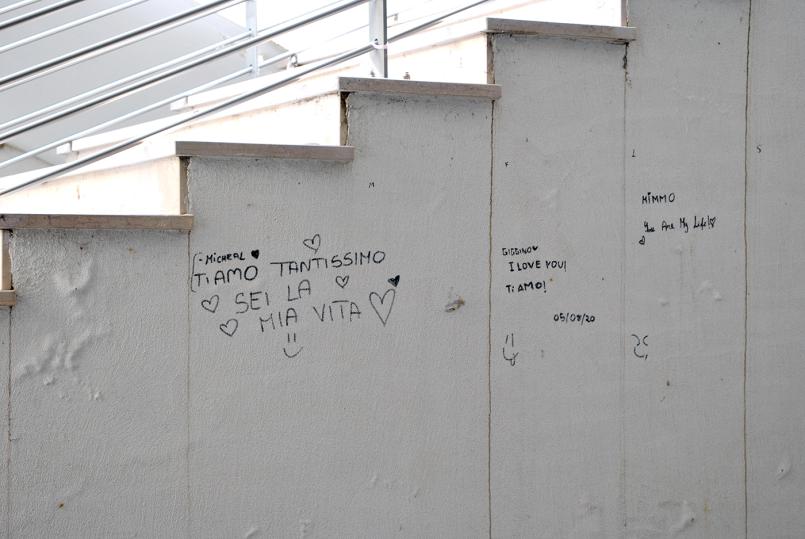 - MICHEAL ♥
Ti AMO TANTISSIMO
SEI LA
MIA VITA
M
F
GIGGINO♥
I LOVE YOU!
Ti AMO!
05/08/20
L
MiMMO
You Are My Life!♡
S